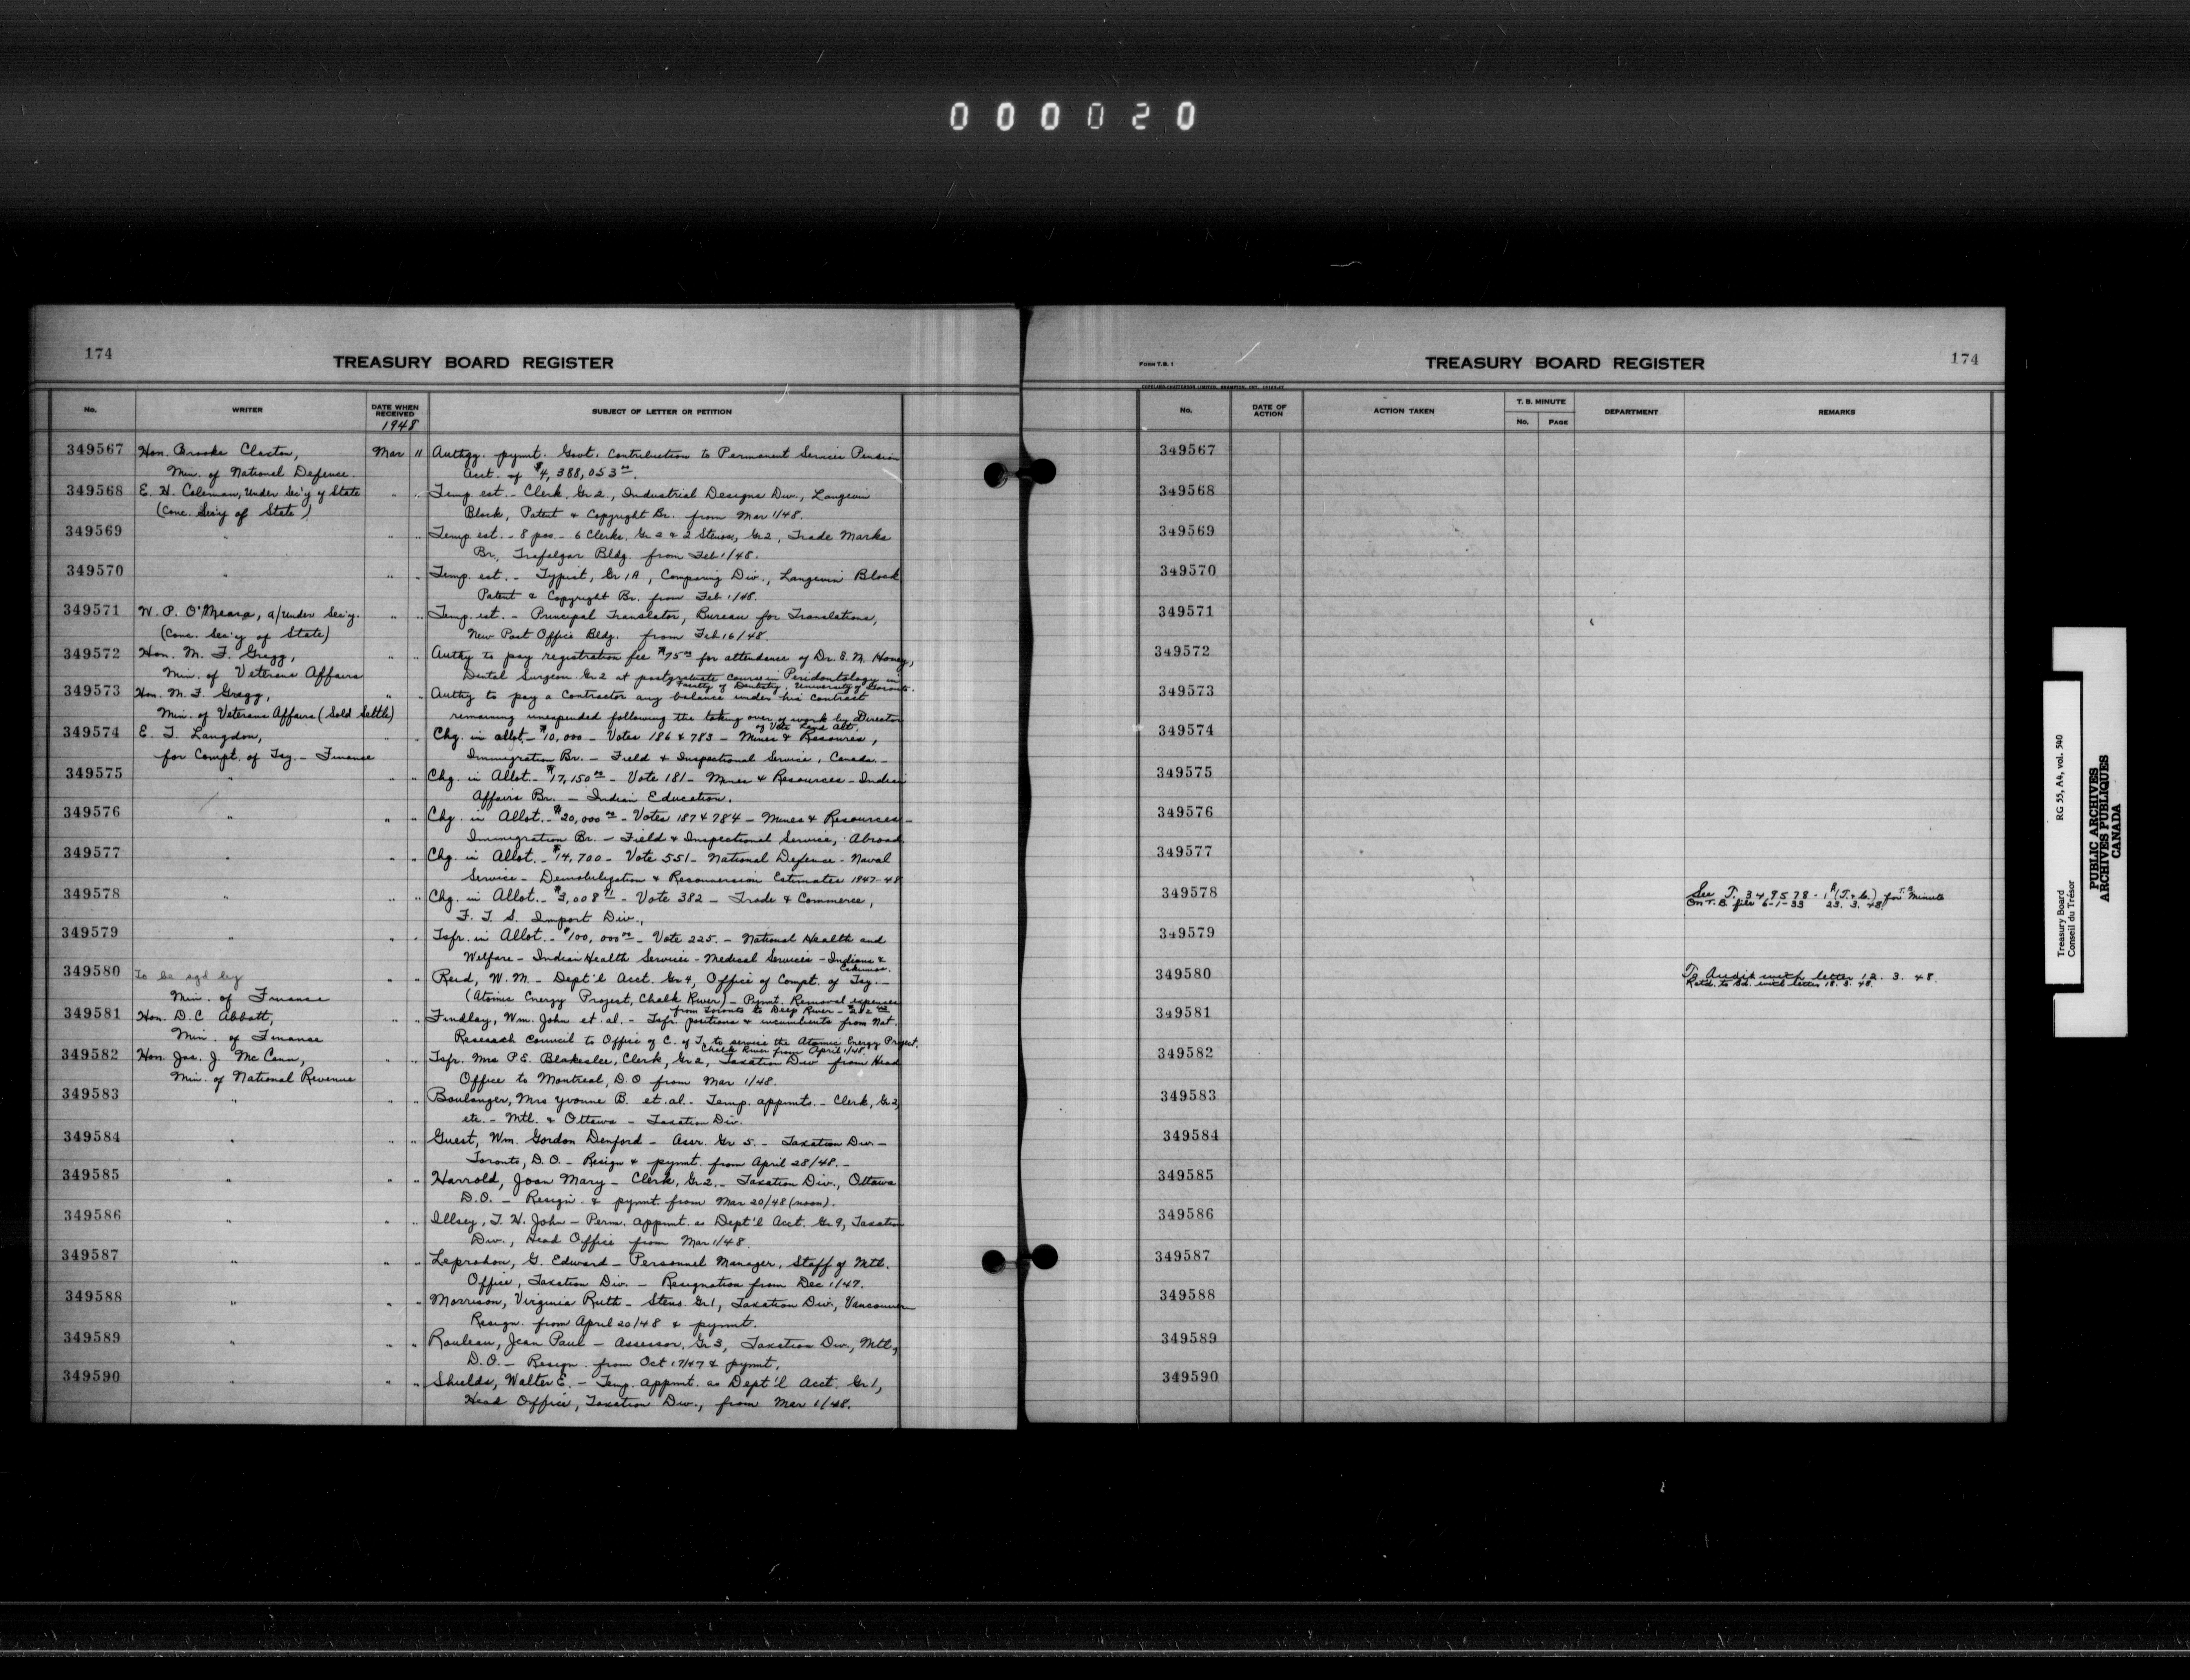 000020
174
TREASURY BOARD REGISTER
No.
WRITER
DATE WHEN RECEIVED
1948
SUBJECT OF LETTER OR PETITION
349567 Hon. Brooke Claxton, Mar 11 Authy. pymt. Govt. Contribution to Permanent Services Pension
Min. of National Defence. Acct. of $4,388,053 00.
349568 E. H. Coleman, Under Sec'y of State " " Temp. est. - Clerk, Gr 2., Industrial Designs Div., Langevin
(Conc. Sec'y of State) Block, Patent & Copyright Br. from Mar 1/48.
349569 " " " Temp. est. - 8 pos. - 6 Clerks, Gr 2 & 2 Stenos, Gr 2, Trade Marks
Br., Trafalgar Bldg. from Feb 1/48.
349570 " " " Temp. est. - Typist, Gr 1A, Comparing Div., Langevin Block
Patent & Copyright Br. from Feb 1/48.
349571 W. P. O'Meara, a/Under Sec'y. " " Temp. est. - Principal Translator, Bureau for Translations,
(Conc. Sec'y of State) New Post Office Bldg. from Feb 16/48.
349572 Hon. M. F. Gregg, " " Authy to pay registration fee $75 00 for attendance of Dr. S. N. Honey,
Min. of Veterans Affairs Dental Surgeon Gr 2 at postgraduate course in Periodontology in
Faculty of Dentistry, University of Toronto.
349573 Hon. M. F. Gregg, " " Authy to pay a Contractor any balance under his contract
Min. of Veterans Affairs (Sold Settle) remaining unexpended following the taking over of work by Director
of Vets Land Act.
349574 E. T. Langdon, " " Chg. in allot. - $10,000 - Votes 186 & 783 - Mines & Resources,
for Compt. of Tsy. - Finance Immigration Br. - Field & Inspectional Service, Canada. -
349575 " " " Chg. in Allot. - $17,150 00 - Vote 181 - Mines & Resources - Indian
Affairs Br. - Indian Education.
349576 " " " Chg. in Allot. - $20,000 00 - Votes 187 & 784 - Mines & Resources -
Immigration Br. - Field & Inspectional Service, Abroad
349577 " " " Chg. in Allot. - $14,700 - Vote 551 - National Defence - Naval
Service - Demobilization & Reconversion Estimates 1947-48
349578 " " " Chg. in Allot. - $3,008 - Vote 382 - Trade & Commerce,
F. T. S. Import Div.,
349579 " " " Tsfr. in Allot. - $100,000 00 - Vote 225. - National Health and
Welfare - Indian Health Services - Medical Services - Indians &
Eskimos.
349580 To be sgd by " " Reid, W. M. - Dept'l Acct. Gr 4, Office of Compt. of Tsy. -
Min. of Finance (Atomic Energy Project, Chalk River) - Pymt. Removal expenses
from Toronto to Deep River - $212
349581 Hon. D. C. Abbott, " " Findlay, Wm. John et. al. - Tsfr. positions & incumbents from Nat.
Min. of Finance Research Council to Office of C. of T. to service the Atomic Energy Project,
Chalk River from April 1/48.
349582 Hon. Jas. J. McCann, " " Tsfr. Mrs P. E. Blakeslee, Clerk, Gr 2, Taxation Div from Head
Min. of National Revenue Office to Montreal, D.O from Mar 1/48.
349583 " " " Boulanger, Mrs Yvonne B. et. al. - Temp. appmts. - Clerk, Gr 2,
etc. - Mtl. & Ottawa - Taxation Div.
349584 " " " Guest, Wm. Gordon Denford - Assr. Gr 5. - Taxation Div. -
Toronto, D.O. - Resign & pymt. from April 28/48. -
349585 " " " Harrold, Joan Mary - Clerk, Gr 2. - Taxation Div., Ottawa
D.O. - Resign. & pymt. from Mar 20/48 (noon).
349586 " " " Illsey, T. H. John - Perm. appmt. as Dept'l Acct. Gr 9, Taxation
Div., Head Office from Mar 1/48.
349587 " " " Leprohon, G. Edward - Personnel Manager, Staff of Mtl.
Office, Taxation Div. - Resignation from Dec 1/47.
349588 " " " Morrison, Virginia Ruth - Steno. Gr 1, Taxation Div., Vancouver
Resign. from April 20/48 & pymt.
349589 " " " Rouleau, Jean Paul - Assessor, Gr 3, Taxation Div., Mtl,
D.O. - Resign. from Oct 17/47 & pymt.
349590 " " " Shields, Walter E. - Temp. appmt. as Dept'l Acct. Gr 1,
Head Office, Taxation Div., from Mar 1/48.
FORM T.B. 1
TREASURY BOARD REGISTER
174
No.
DATE OF ACTION
ACTION TAKEN
T. B. MINUTE
No.
PAGE
DEPARTMENT
REMARKS
349567
349568
349569
349570
349571
349572
349573
349574
349575
349576
349577
349578 See T. 349578-1 (T.&C.) for T.B. Minute
On T.B. file 6-1-33 23. 3. 48.
349579
349580 To Audit with letter 12. 3. 48.
Retd. to Bd. with letter 18. 3. 48.
349581
349582
349583
349584
349585
349586
349587
349588
349589
349590
Treasury Board
Conseil du Trésor
RG 55, A4, vol. 540
PUBLIC ARCHIVES
ARCHIVES PUBLIQUES
CANADA